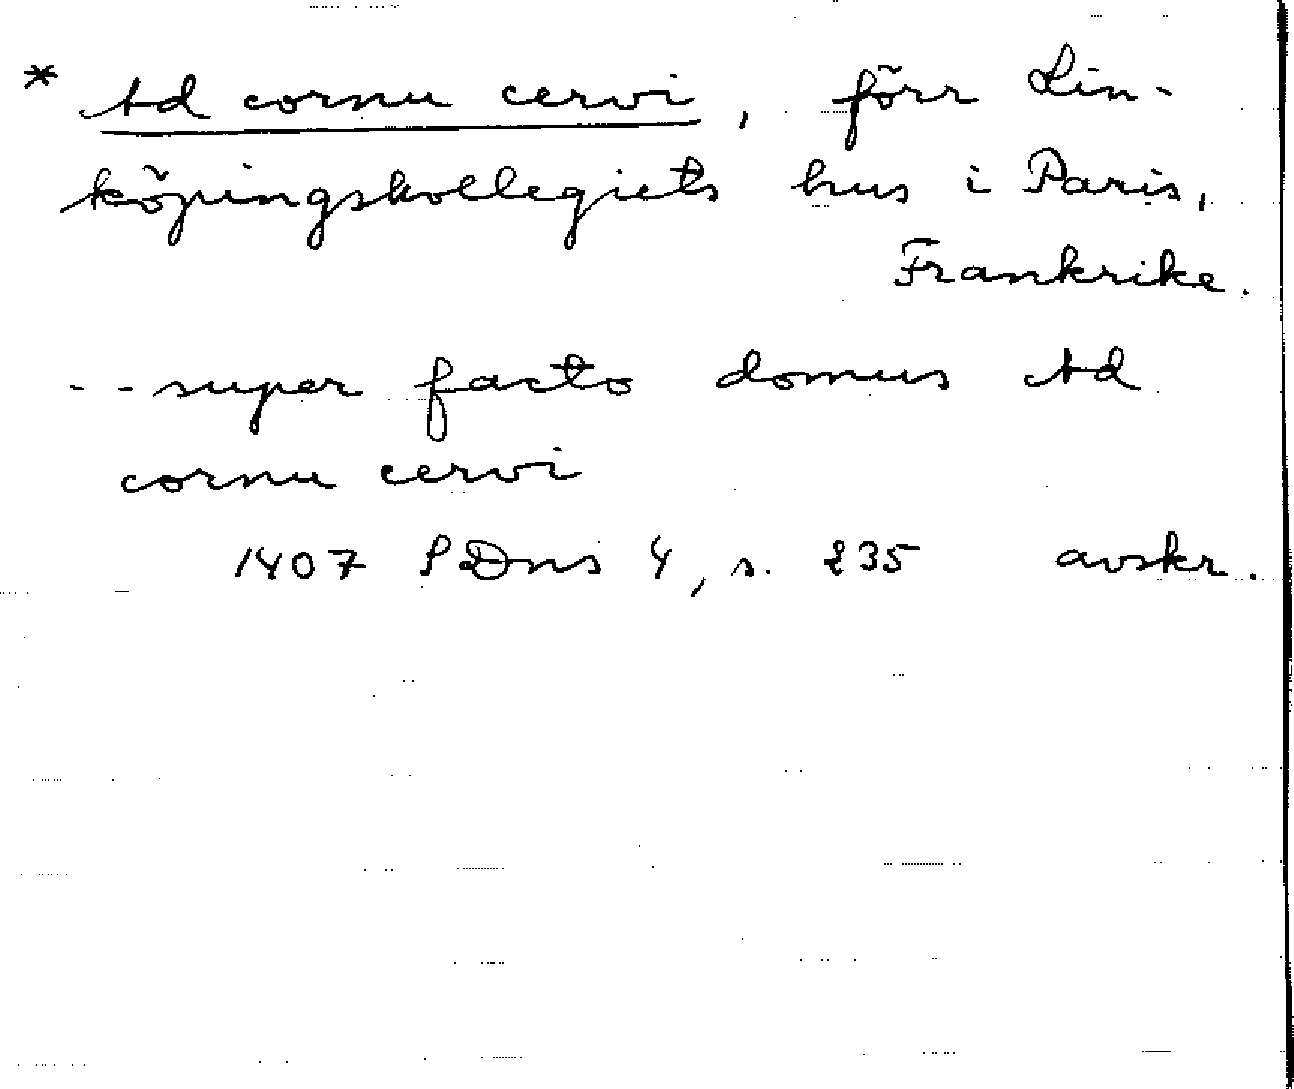 * Ad cornu cervi, förr Lin-
köpingskollegiets hus i Paris,
Frankrike.
- - super facto domus Ad
cornu cervi
1407 SDns 4, s. 235 avskr.